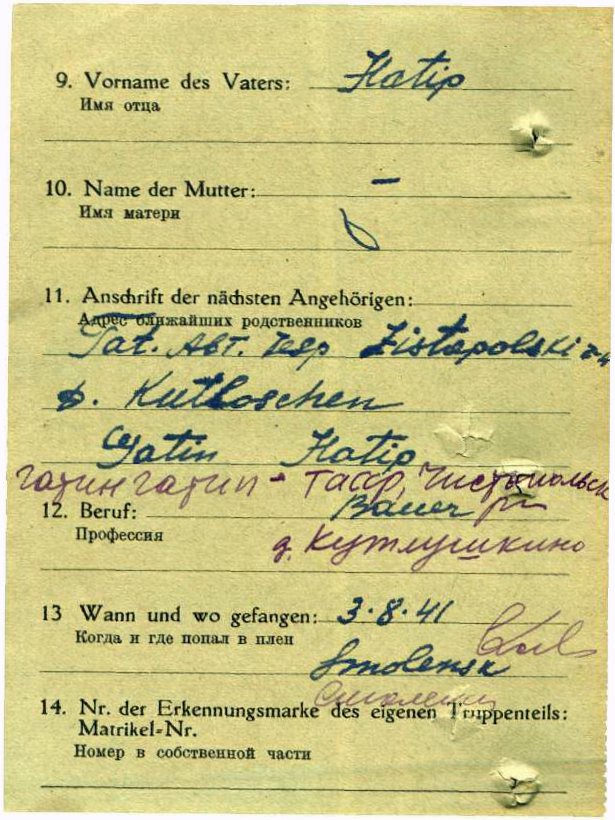 9. Vorname des Vaters: Hatip
Имя отца
10. Name der Mutter: —
Имя матери
11. Anschrift der nächsten Angehörigen:
Адрес ближайших родственников
Tat. Авт. Zistapolski
d. Kutloschen
Gatin Hatip
гатин гатип - ТАССР, Чистопольск
12. Beruf: Bauer рн
Профессия
д. Кутлушкино
13 Wann und wo gefangen: 3.8.41
Когда и где попал в плен
Smolensk
Смоленск
14. Nr. der Erkennungsmarke des eigenen Truppenteils:
Matrikel-Nr.
Номер в собственной части